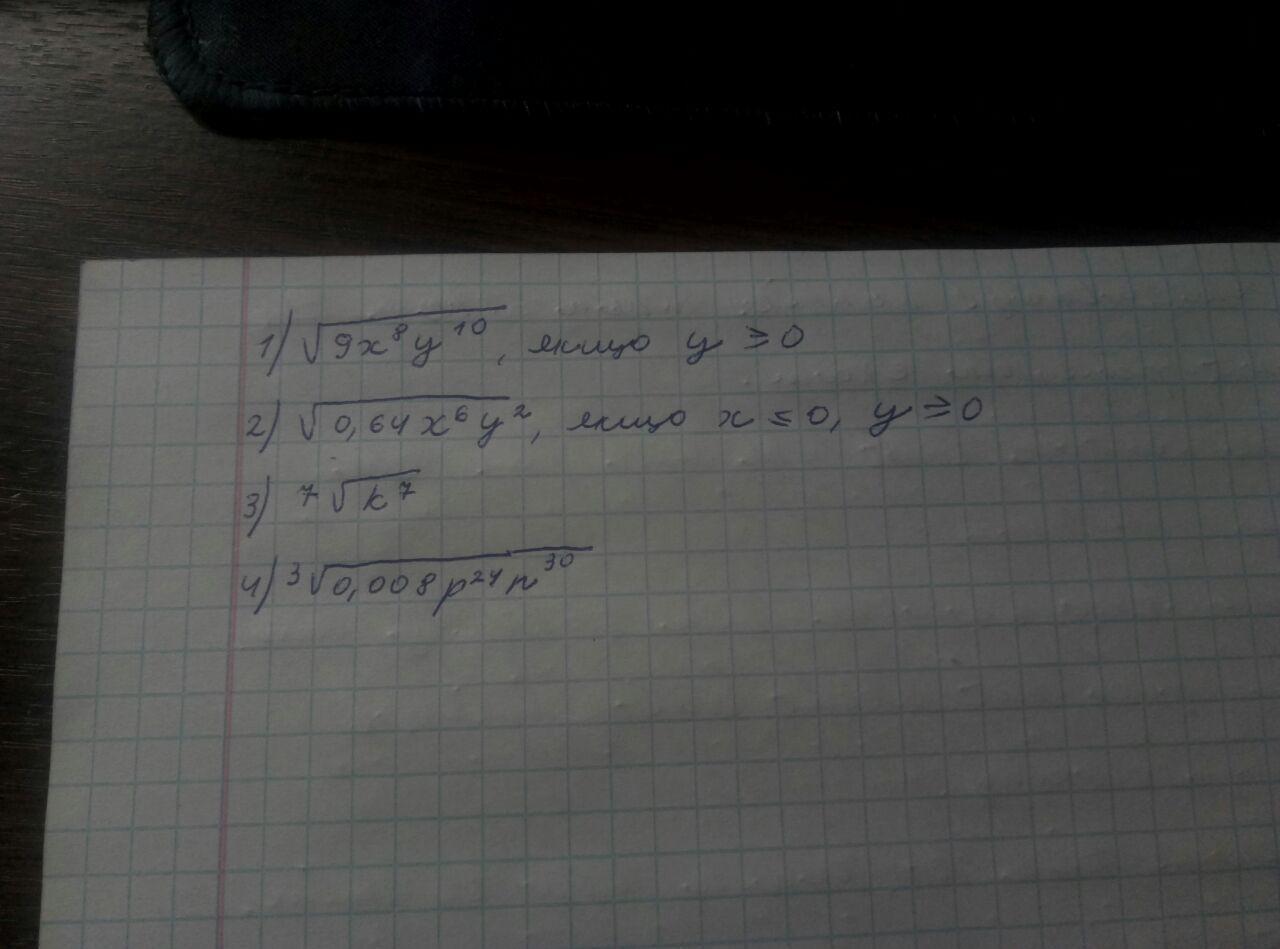 1) √9x⁸y¹⁰, якщо y ≥ 0
2) √0,64x⁶y², якщо x ≤ 0, y ≥ 0
3) ⁷√k⁷
4) ³√0,008p²⁴n³⁰